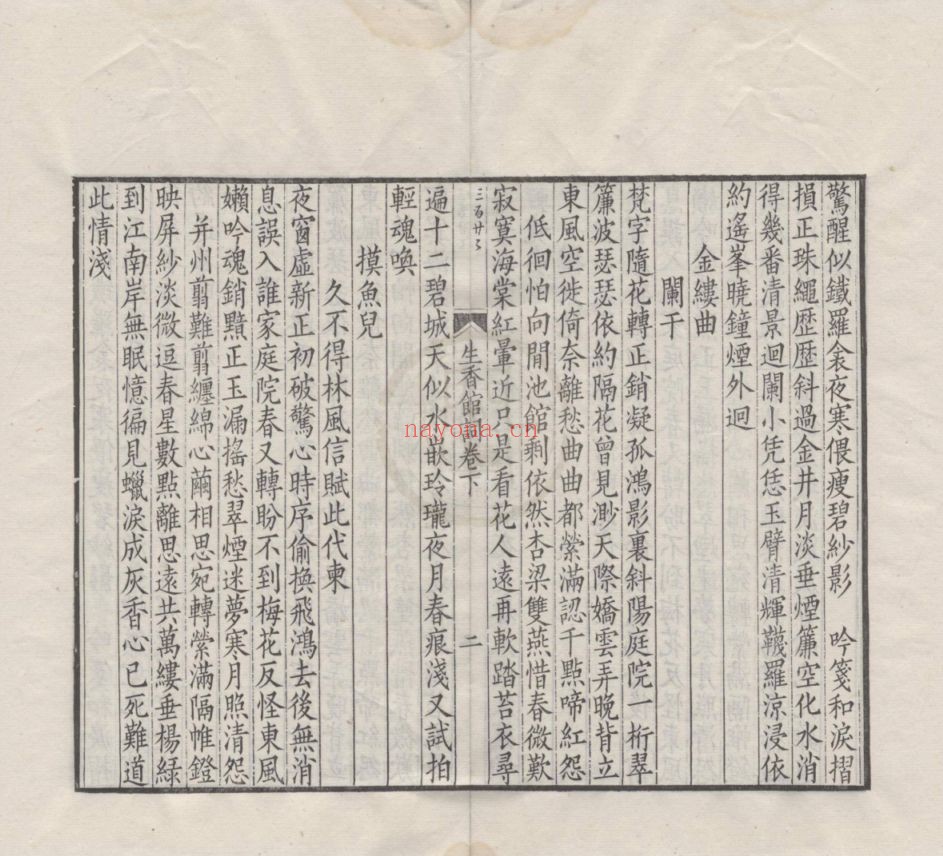 驚醒似鐵羅衾夜寒偎瘦碧紗影　吟箋和淚摺
損正珠繩歷歷斜過金井月淡垂煙簾空化水消
得幾番清景迴闌小凭恁玉臂清輝韈羅涼浸依
約遙峯曉鐘煙外迥
金縷曲
闌干
梵字隨花轉正銷凝孤鴻影裏斜陽庭院一桁翠
簾波瑟瑟依約隔花曾見渺天際嬌雲弄晚背立
東風空徙倚奈離愁曲曲都縈滿認千點啼紅怨
低徊怕向閒池館剩依然杏梁雙燕惜春微歎
寂寞海棠紅暈近只是看花人遠再軟踏苔衣尋
三百廿二
生香館詞卷下
二
nayona.cn
遍十二碧城天似水嵌玲瓏夜月春痕淺又試拍
輕魂喚
摸魚兒
久不得林風信賦此代柬
夜窗虛新正初破驚心時序偷換飛鴻去後無消
息誤入誰家庭院春又轉盼不到梅花反怪東風
嬾吟魂銷黯正玉漏搖愁翠煙迷夢寒月照清怨
并州翦難翦纏綿心繭相思宛轉縈滿隔帷鐙
映屏紗淡微逗春星數點離思遠共萬縷垂楊綠
到江南岸無眠憶徧見蠟淚成灰香心已死難道
此情淺